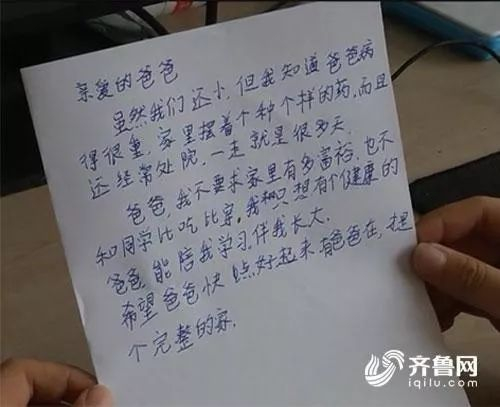 亲爱的爸爸
虽然我们还小,但我知道爸爸病
得很重,家里摆着个种个样的药,而且
还经常处院,一走就是很多天.
爸爸,我不要求家里有多富裕,也不
和同学比吃比穿.我只想有个健康的
爸爸,能陪我学习伴我长大.
希望爸爸快点好起来,有爸爸在,才是
个完整的家.
齐鲁网
iqilu.com